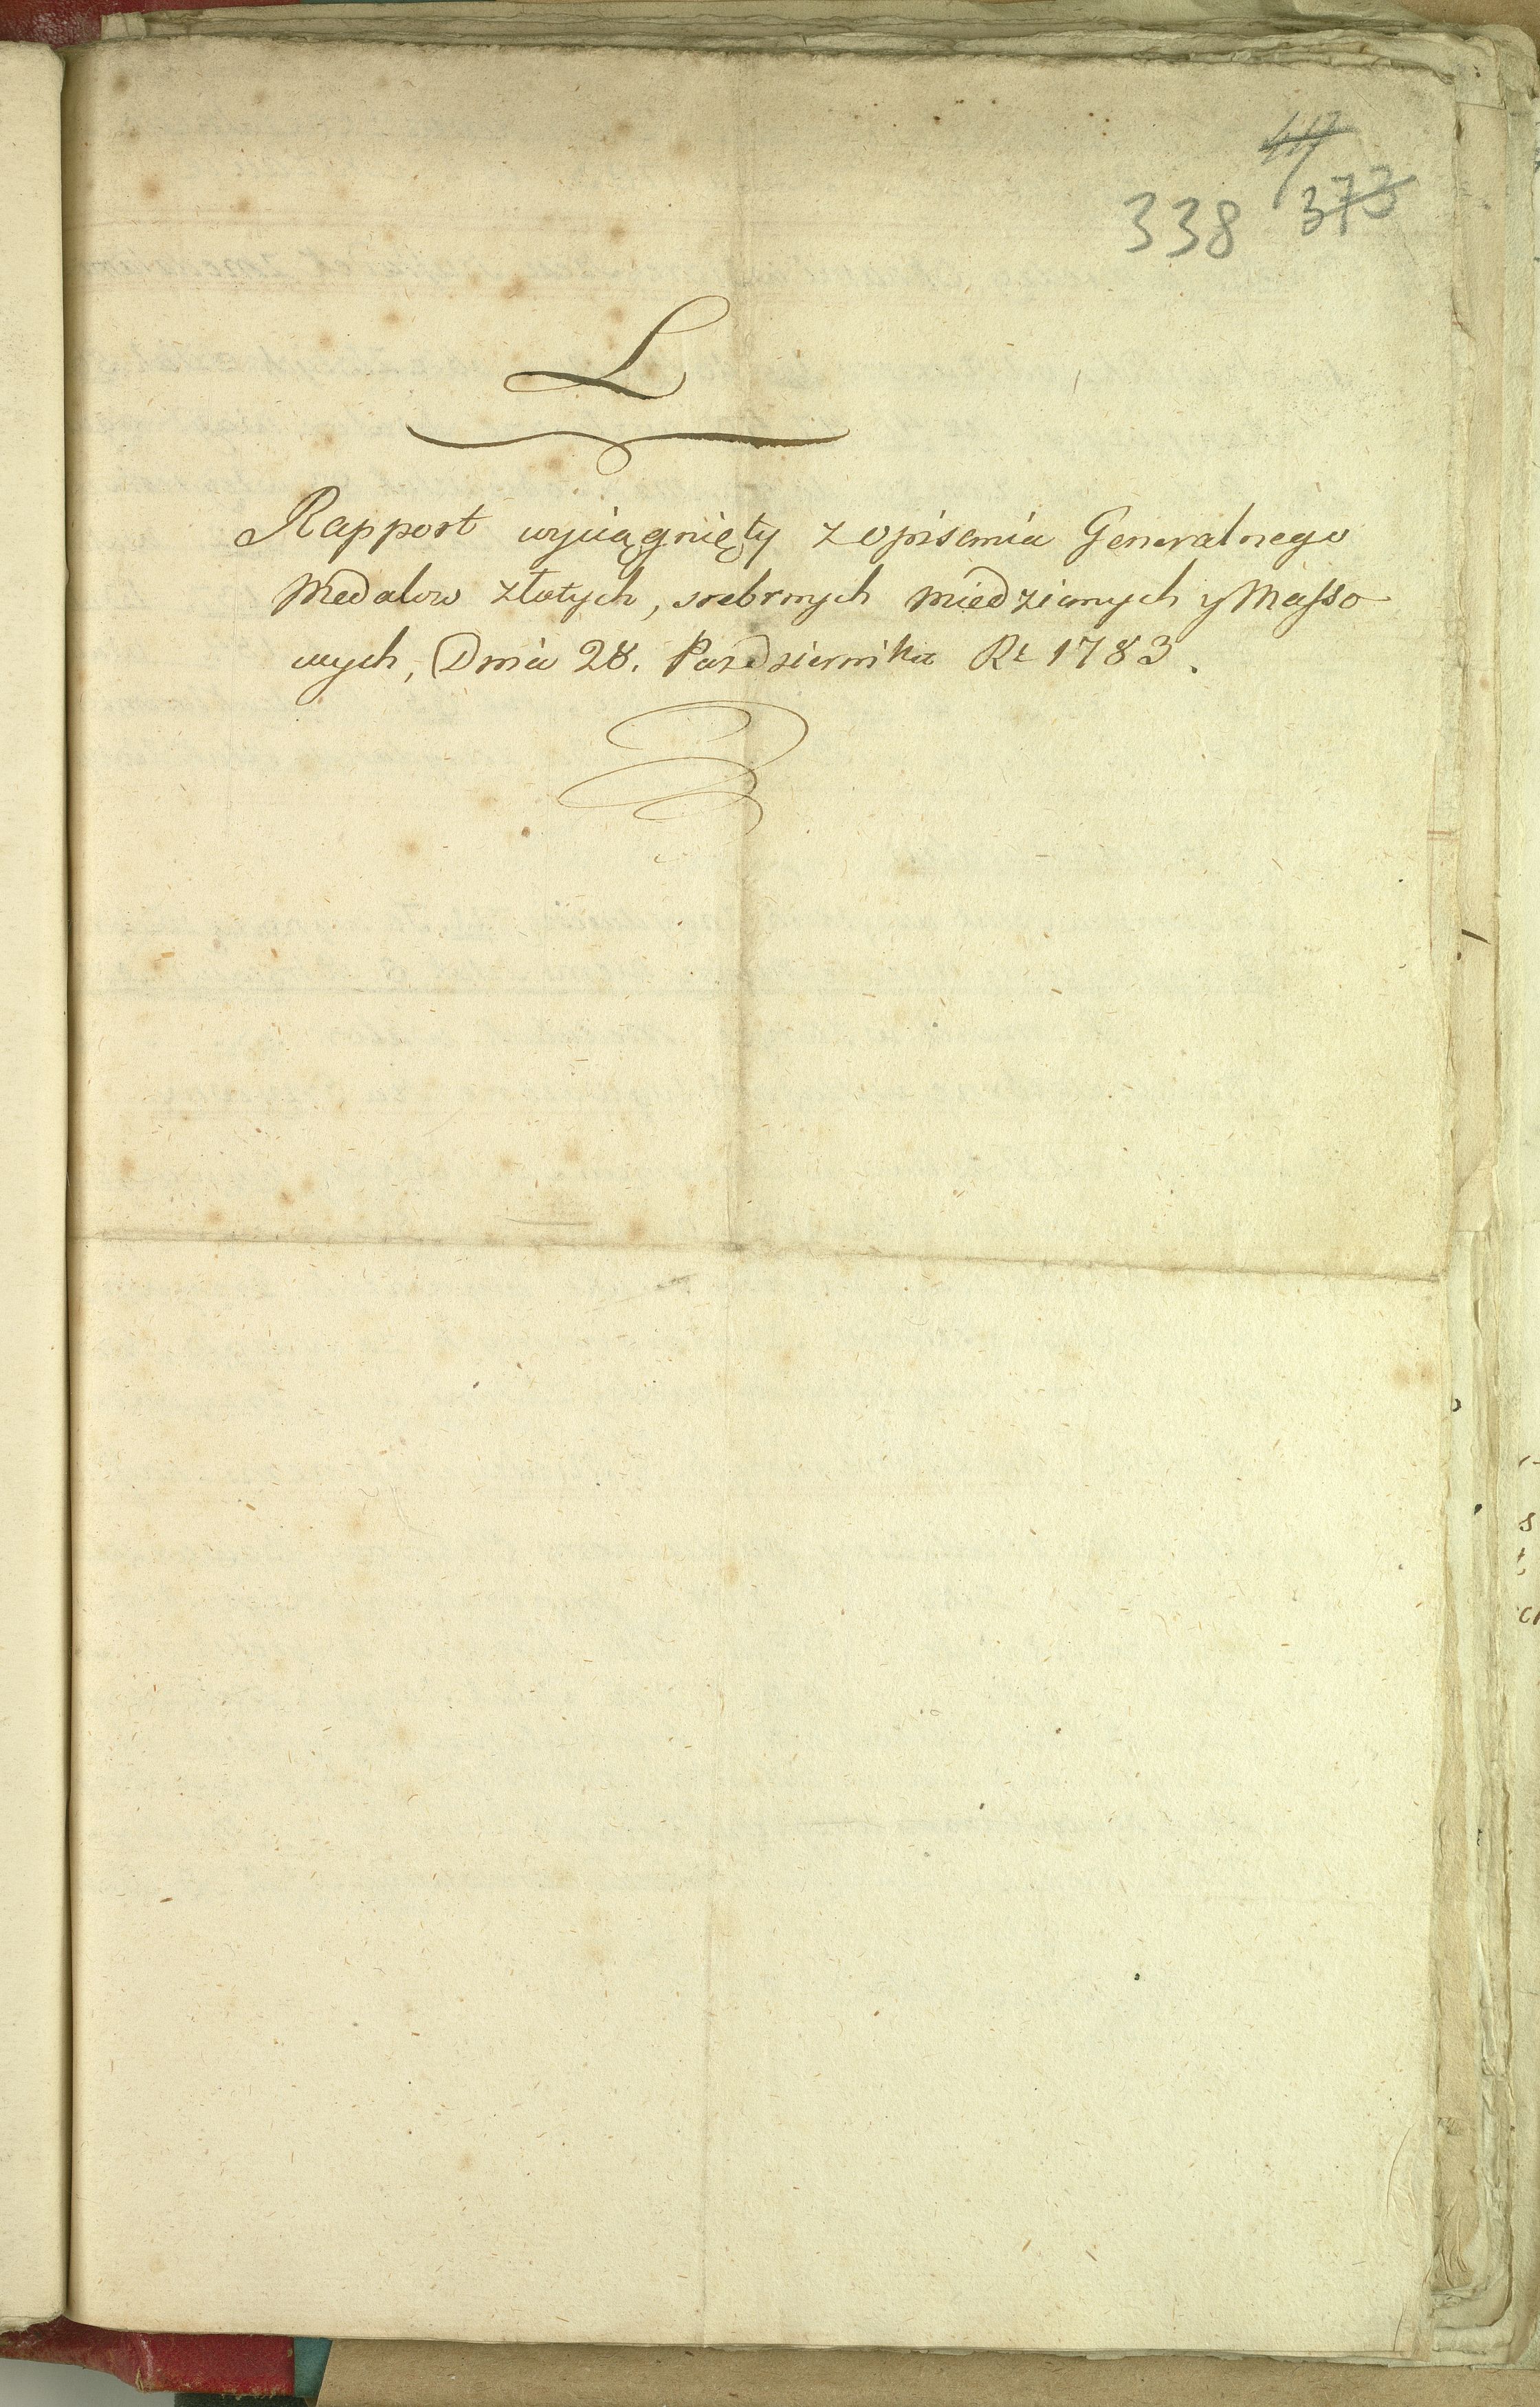 373
338
L
Rapport wyciągnięty z opisania Generalnego
Medalow złotych, srebrnych miedzianych y Masso
wych, Dnia 28. Pazdziernika Rt 1783.